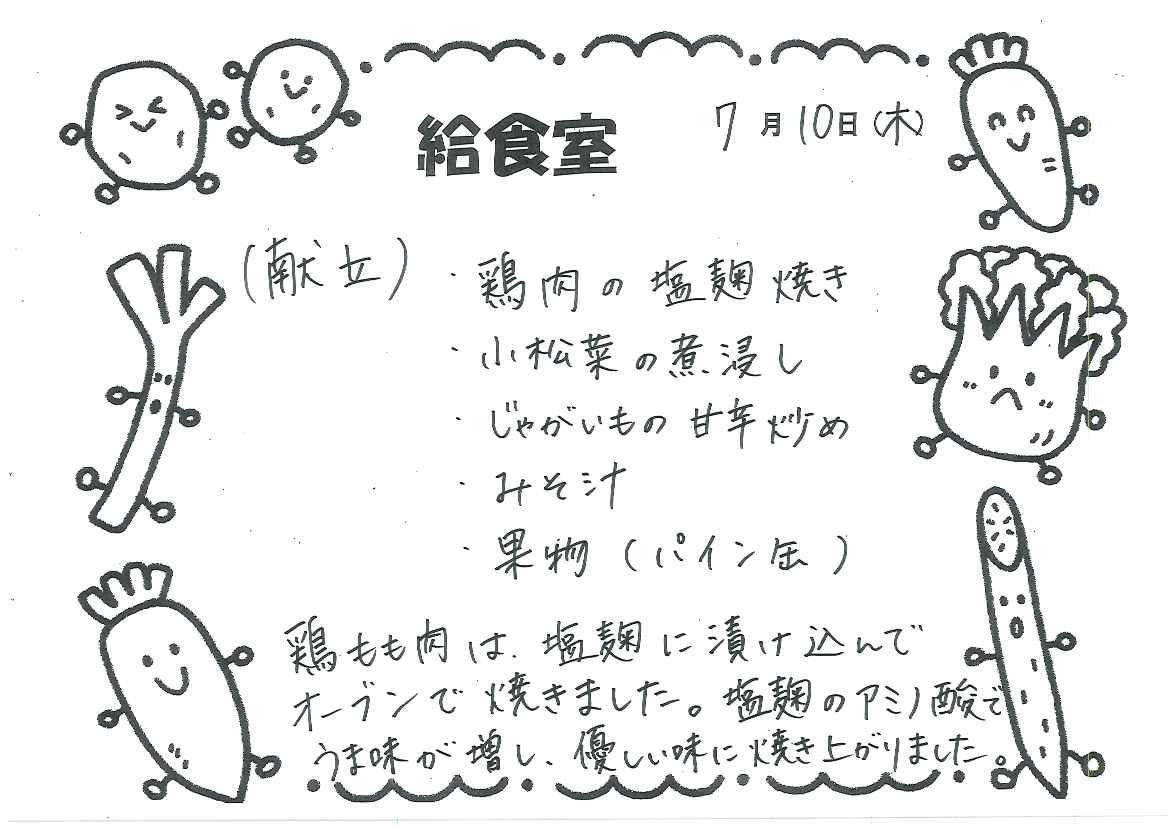 給食室
7月10日(木)
(献立)
・鶏肉の塩麹焼き
・小松菜の煮浸し
・じゃがいもの甘辛炒め
・みそ汁
・果物(パイン缶)
鶏もも肉は、塩麹に漬け込んで
オーブンで焼きました。塩麹のアミノ酸で
うま味が増し、優しい味に焼き上がりました。